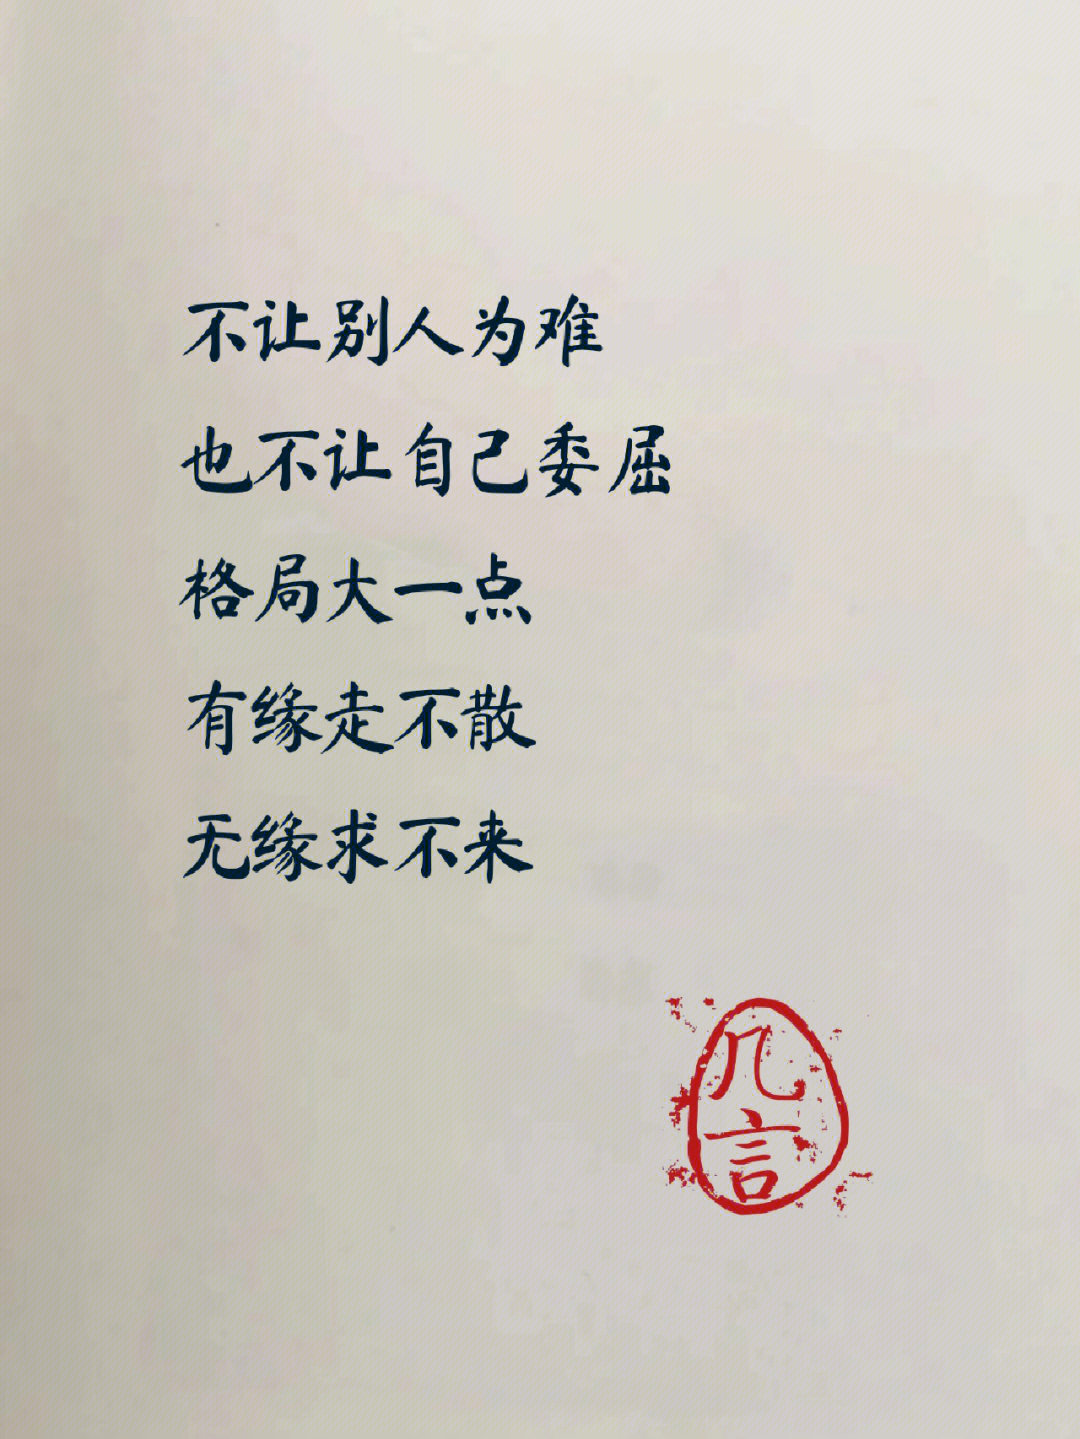 不让别人为难
也不让自己委屈
格局大一点
有缘走不散
无缘求不来
几言